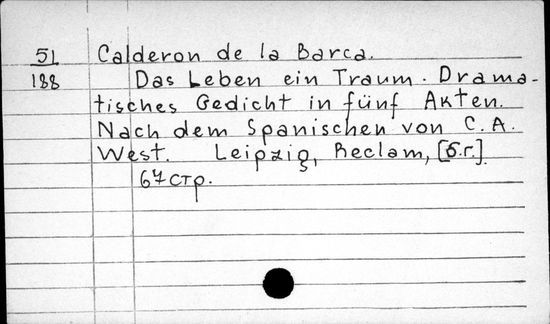 51 Calderon de la Barca.
188 Das Leben ein Traum. Drama-
tisches Gedicht in fünf Akten.
Nach dem Spanischen von C. A.
West. Leipzig, Reclam, [б.г.].
67 стр.